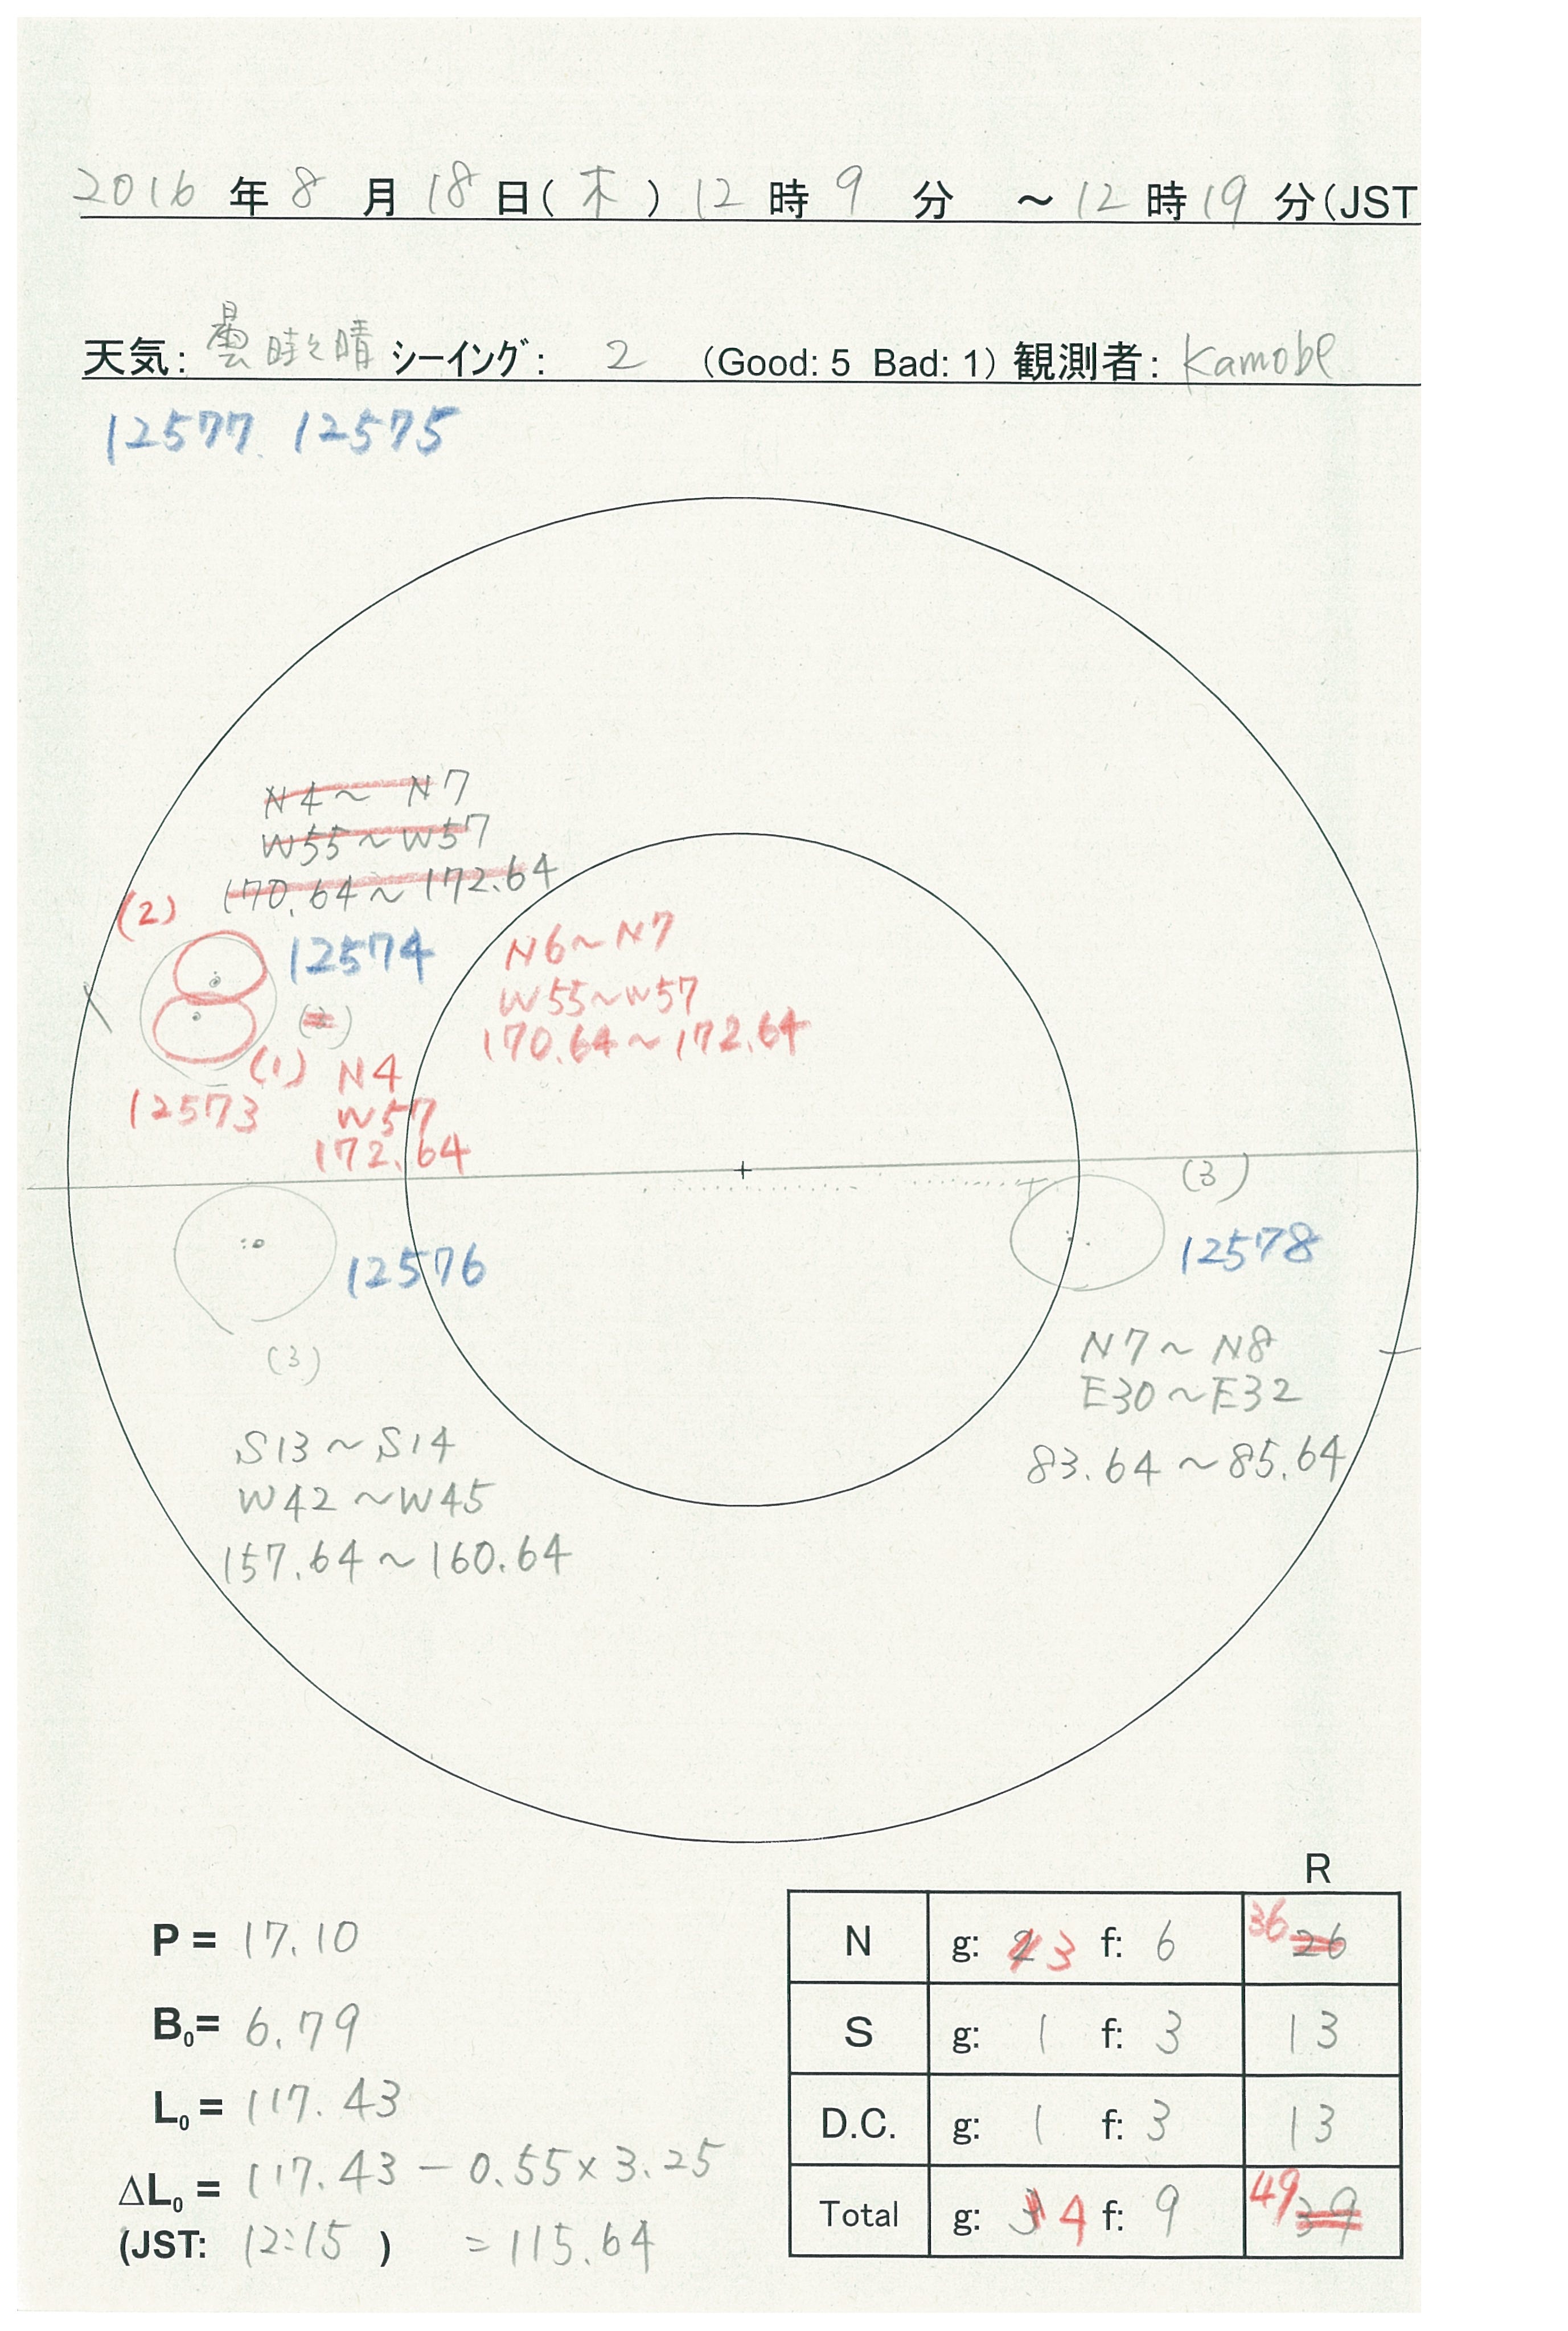 2016 年 8 月 18 日(木) 12 時 9 分 ～12 時 19 分(JST
天気: 曇時々晴 シーイング: 2 (Good: 5 Bad: 1) 観測者: Kamobe
12577. 12575
N4～ N7
W55～W57
170.64～172.64
(2)
12574
N6～N7
W55～W57
170.64～172.64
(1)
N4
12573
W57
172.64
(3)
12578
12576
(3)
N7～N8
E30～E32
83.64～85.64
S13～S14
W42～W45
157.64～160.64
R
N g: 2 3 f: 6 36 26
S g: 1 f: 3 13
D.C. g: 1 f: 3 13
Total g: 3 4 f: 9 49 39
P = 17.10
B₀= 6.79
L₀ = 117.43
ΔL₀ = 117.43 - 0.55×3.25
(JST: 12:15 ) = 115.64